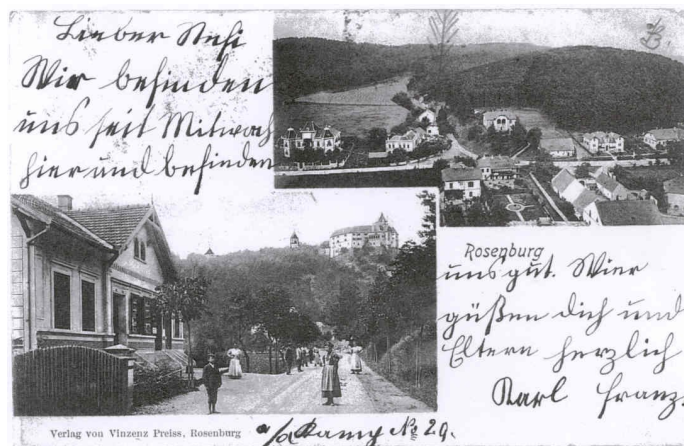 Lieber Resi
Wir befinden
uns seit Mitwoch
hier und befinden
Rosenburg
uns gut. Wier
güßen dich und
Eltern herzlich
Karl Franz.
Verlag von Vinzenz Preiss, Rosenburg
a/Kamp № 29.